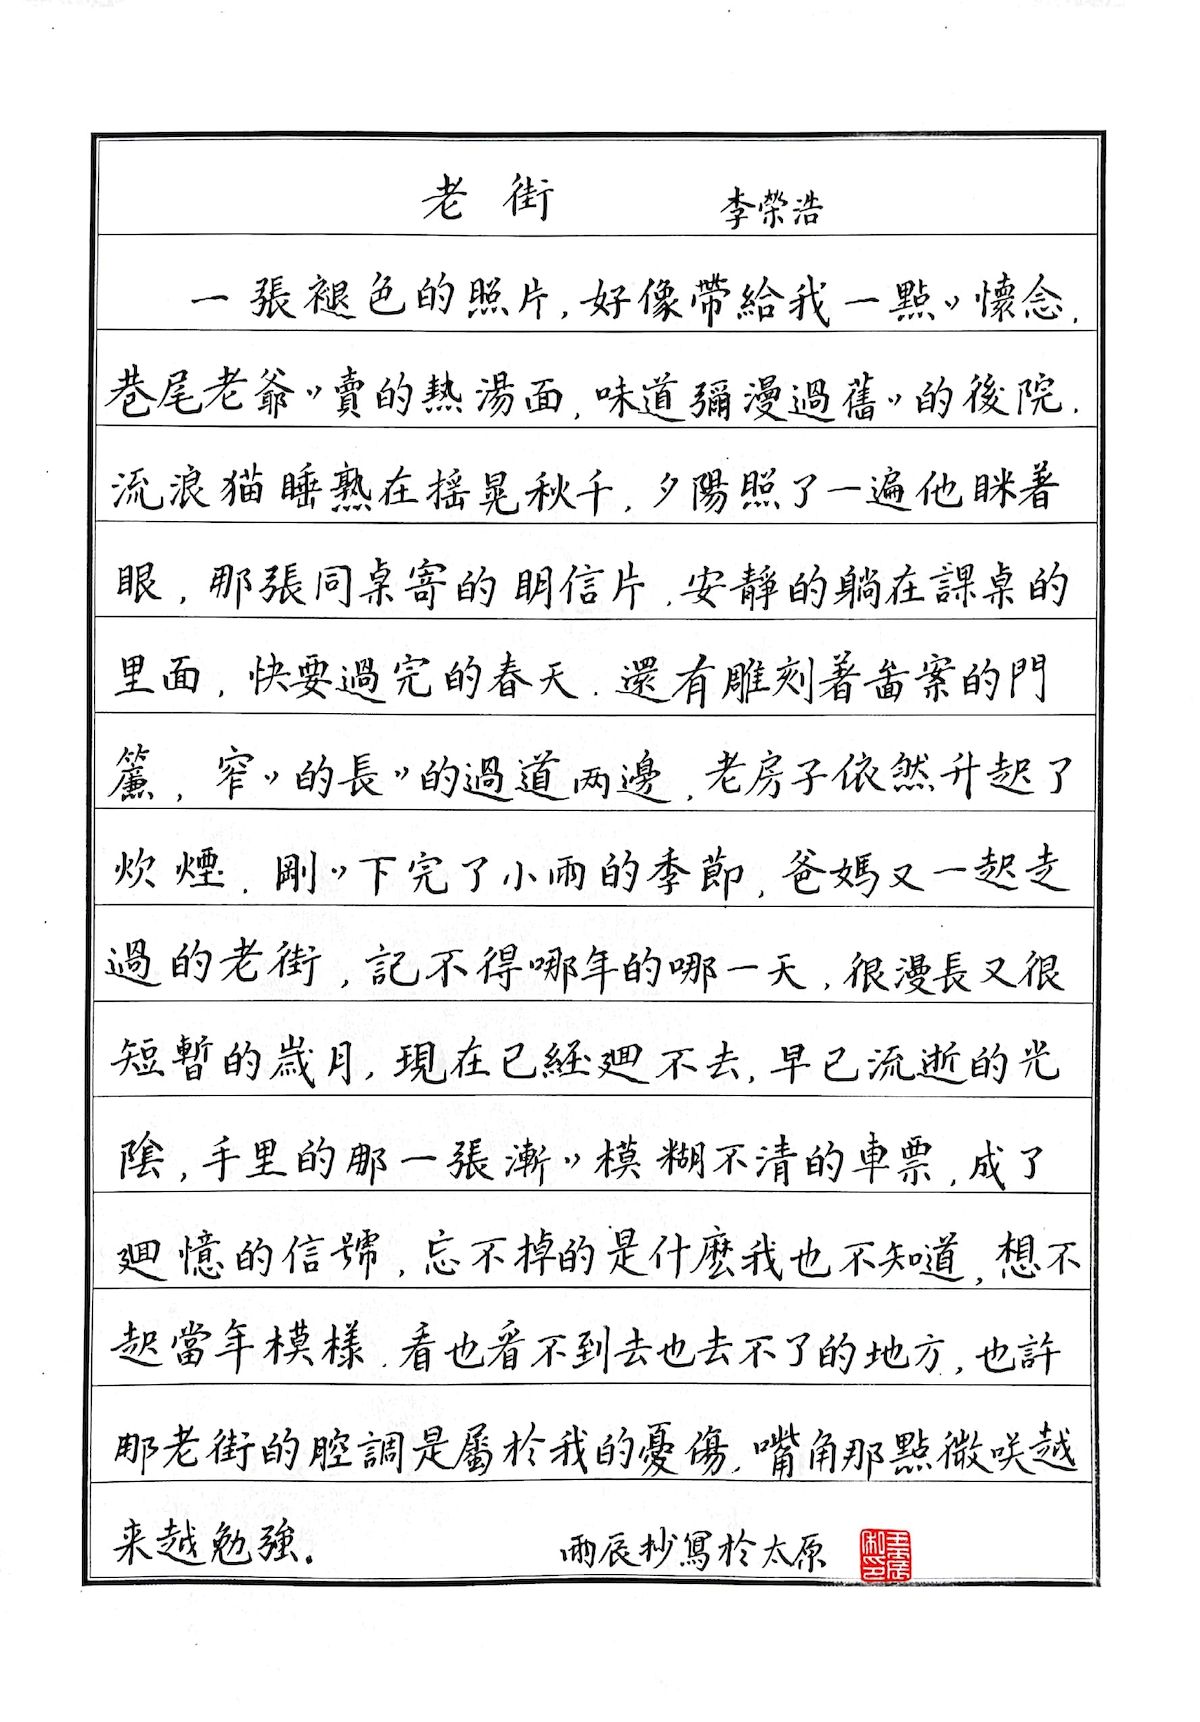 老街 李榮浩
一張褪色的照片，好像帶給我一點〻懷念．
巷尾老爺〻賣的熱湯面，味道彌漫過舊〻的後院．
流浪猫睡熟在摇晃秋千，夕陽照了一遍他眯着
眼，那張同桌寄的明信片，安靜的躺在課桌的
里面，快要過完的春天．還有雕刻着啚案的門
簾，窄〻的長〻的過道两邊，老房子依然升起了
炊煙．剛〻下完了小雨的季節，爸媽又一起走
過的老街，記不得哪年的哪一天，很漫長又很
短暫的嵗月，現在已經廻不去，早已流逝的光
陰，手里的那一張漸〻模糊不清的車票，成了
廻憶的信號，忘不掉的是什麽我也不知道，想不
起當年模樣．看也看不到去也去不了的地方，也許
那老街的腔調是屬於我的憂傷，嘴角那點微咲越
来越勉強．
雨辰抄寫於太原